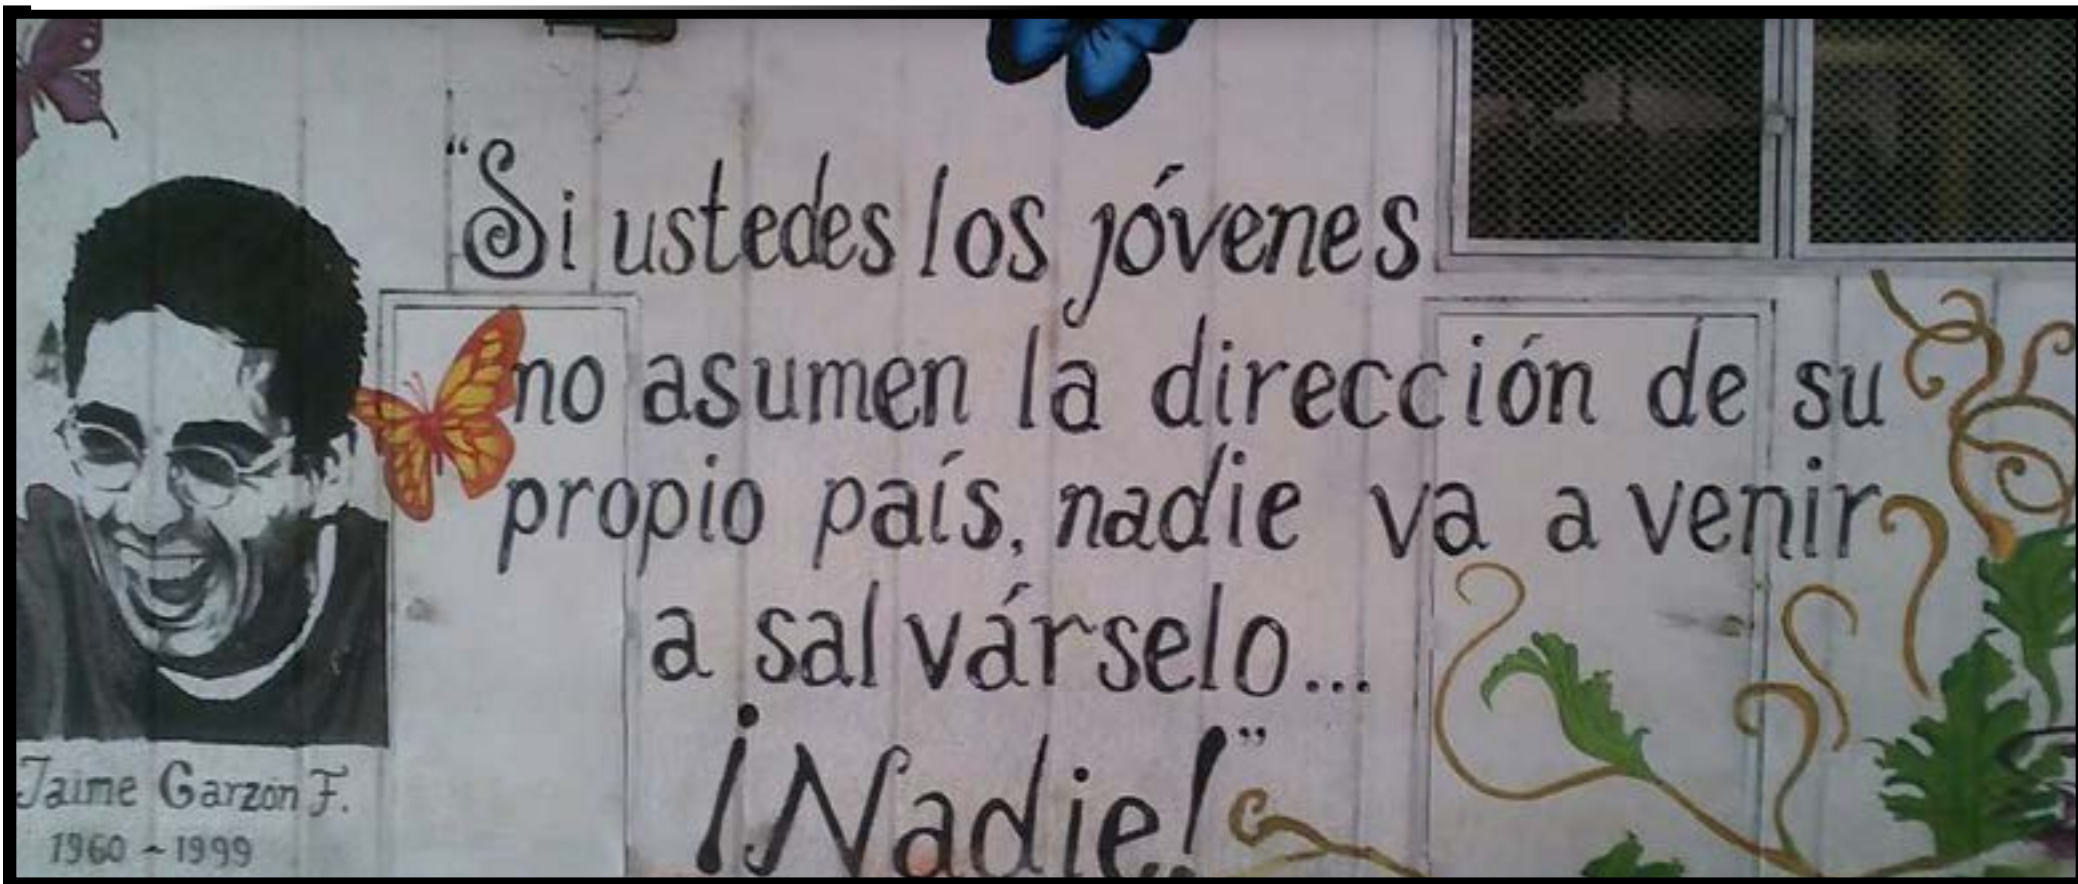 “Si ustedes los jóvenes
no asumen la dirección de su
propio país, nadie va a venir
a salvárselo...
¡Nadie!”
Jaime Garzón F.
1960 ~ 1999